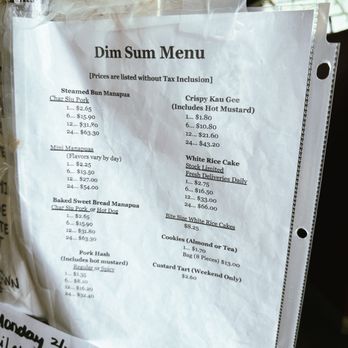 Dim Sum Menu
[Prices are listed without Tax Inclusion]
Steamed Bun Manapua
Char Siu Pork
1... $2.65
6... $15.90
12... $31.80
24... $63.30
Mini Manapuas
(Flavors vary by day)
1... $2.25
6... $13.50
12... $27.00
24... $54.00
Baked Sweet Bread Manapua
Char Siu Pork or Hot Dog
1... $2.65
6... $15.90
12... $31.80
24... $63.30
Pork Hash
(Includes hot mustard)
Regular or Spicy
1... $1.35
6... $8.10
12... $16.20
24... $32.40
Crispy Kau Gee
(Includes Hot Mustard)
1... $1.80
6... $10.80
12... $21.60
24... $43.20
White Rice Cake
Stock Limited
Fresh Deliveries Daily
1... $2.75
6... $16.50
12... $33.00
24... $66.00
Bite Size White Rice Cakes
$8.25
Cookies (Almond or Tea)
1... $1.70
Bag (8 Pieces) $13.00
Custard Tart (Weekend Only)
$2.60
OWN
Monday 2/